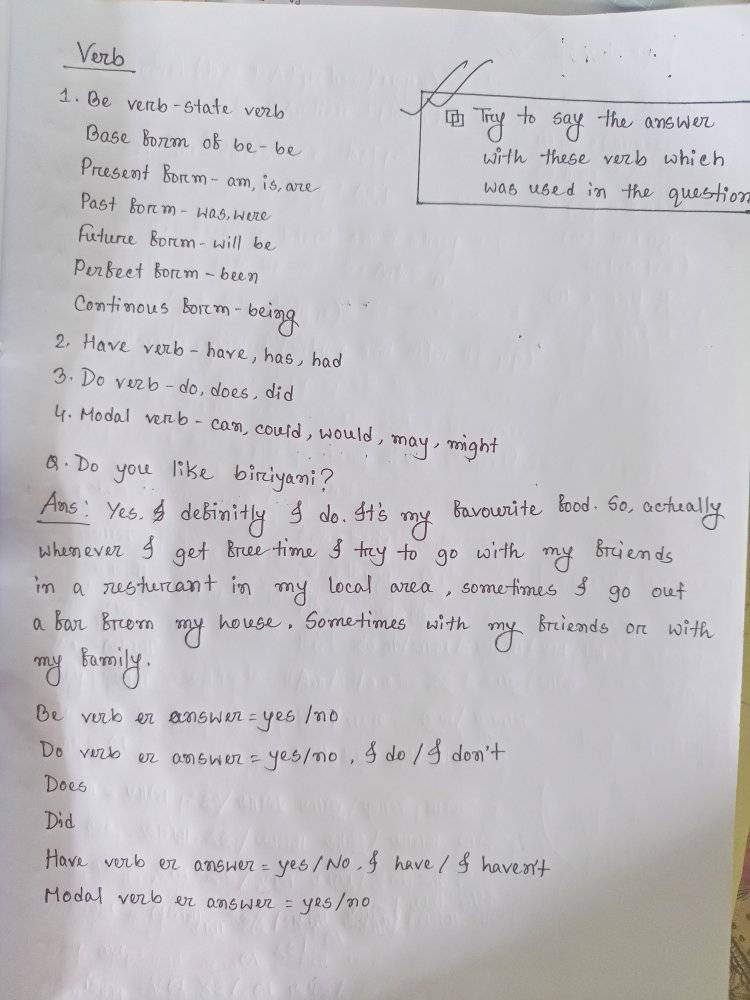 Verb
1. Be verb-state verb
Base form of be-be
Present form-am, is, are
Past form-was, were
Future form-will be
Perfect form-been
Continous form-being
2. Have verb-have, has, had
3. Do verb-do, does, did
4. Modal verb-can, could, would, may, might
Try to say the answer
with these verb which
was used in the question
Q. Do you like biriyani?
Ans: Yes. I definitly I do. It's my favourite food. So, actually
whenever I get free time I try to go with my friends
in a resturant in my local area, sometimes I go out
a far from my house. Sometimes with my friends or with
my family.
Be verb er answer = yes/no
Do verb er answer = yes/no, I do/I don't
Does
Did
Have verb er answer = yes/No. I have/I haven't
Modal verb er answer = yes/no